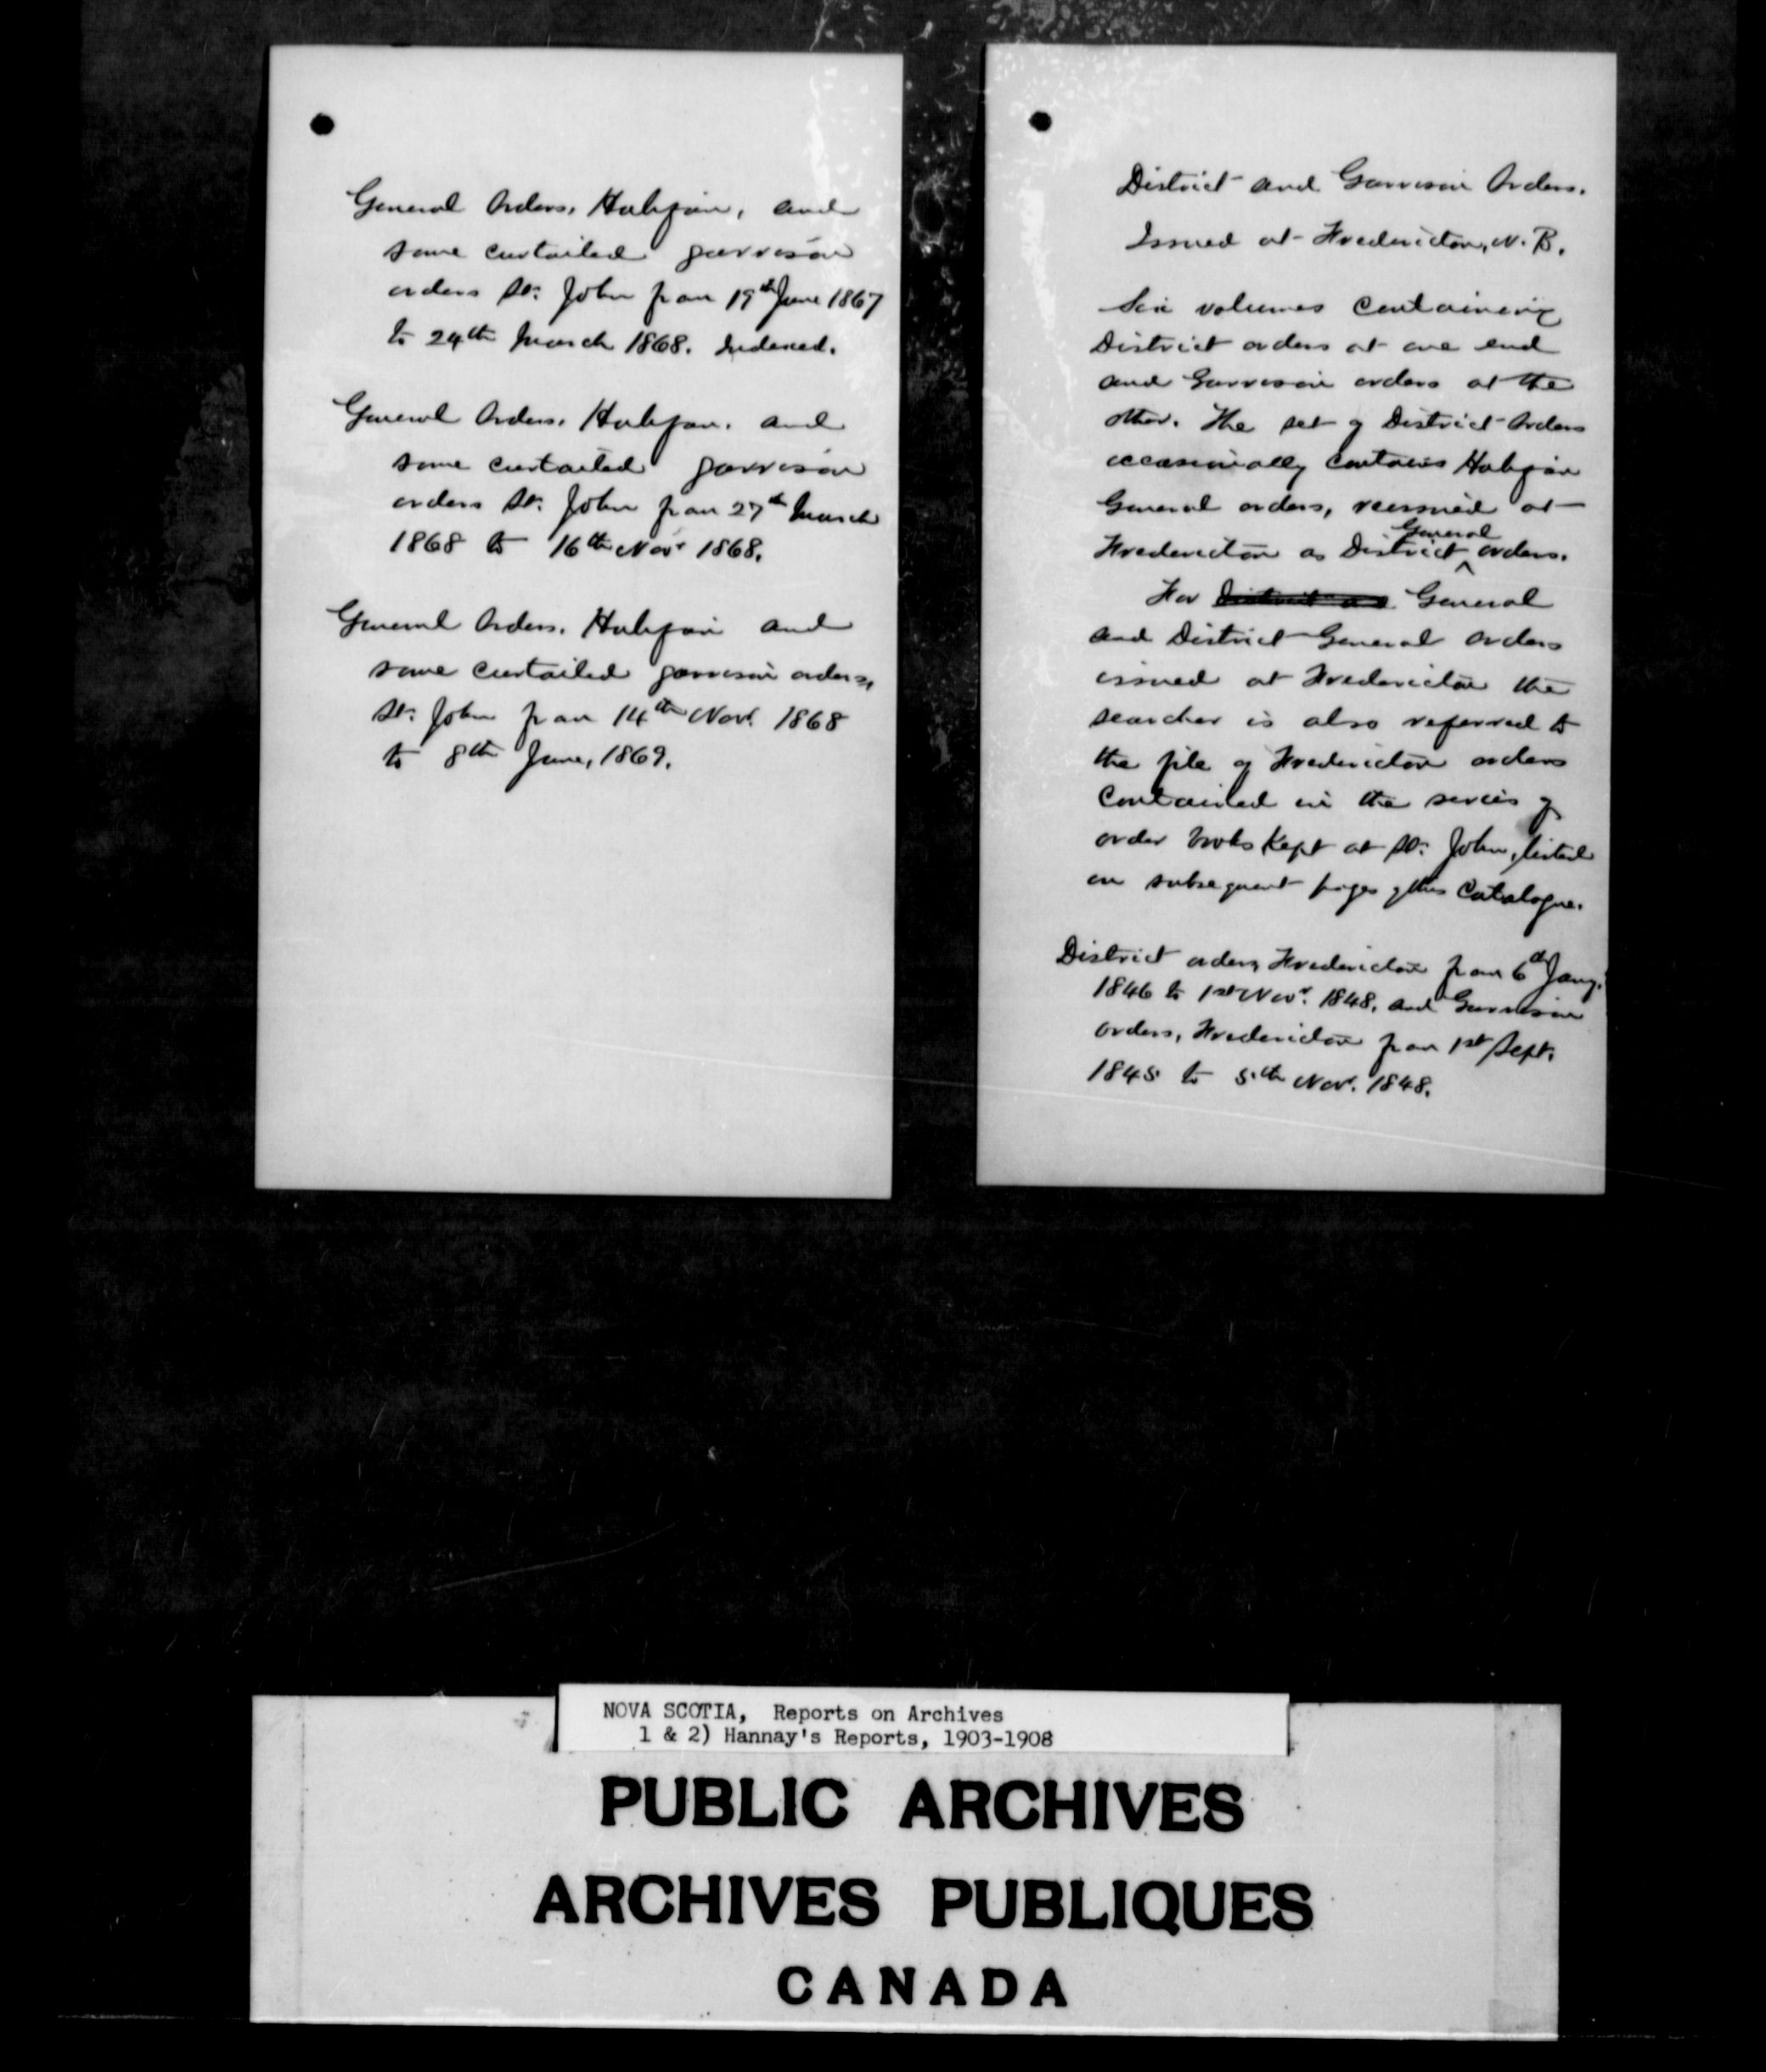 General Orders, Halifax, and
some curtailed garrison
orders St. John from 19th June 1867
to 24th March 1868. Indexed.
General Orders, Halifax, and
some curtailed garrison
orders St. John from 27th March
1868 to 16th Novr 1868.
General Orders, Halifax and
some curtailed garrison orders,
St. John from 14th Novr. 1868
to 8th June, 1869.
District and Garrison Orders.
Issued at Fredericton, N. B.
Six volumes containing
District orders at one end
and Garrison orders at the
other. The set of District Orders
occasionally contains Halifax
General orders, reissued at
Fredericton as District General orders.
For General
and District General orders
issued at Fredericton the
searcher is also referred to
the file of Fredericton orders
contained in the series of
order books kept at St. John, listed
on subsequent pages of this Catalogue.
District orders, Fredericton from 6th Jany.
1846 to 1st Novr. 1848, and Garrison
orders, Fredericton from 1st Sept.
1845 to 5th Novr. 1848.
NOVA SCOTIA, Reports on Archives
1 & 2) Hannay's Reports, 1903-1908
PUBLIC ARCHIVES
ARCHIVES PUBLIQUES
CANADA